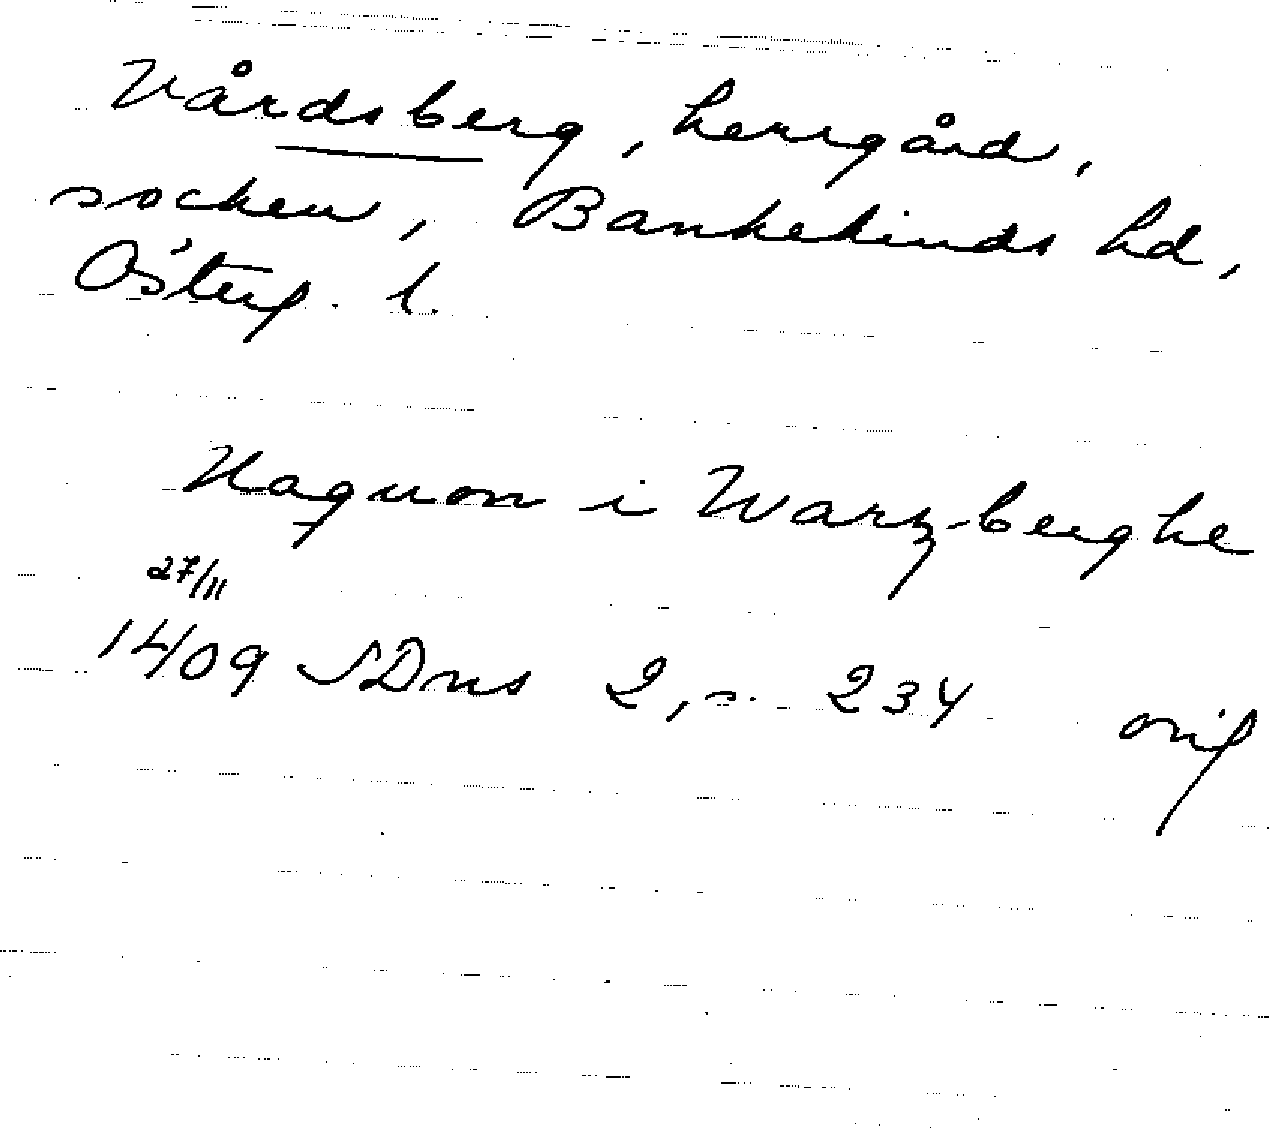 Vårdsberg, herrgård,
socken, Bankekinds hd,
Österg. l.
Haquon i Warzberghe
27/11
1409 SDns 2, s. 234 orig